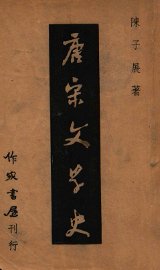 陳子展著
唐宋文学史
作家書屋刊行